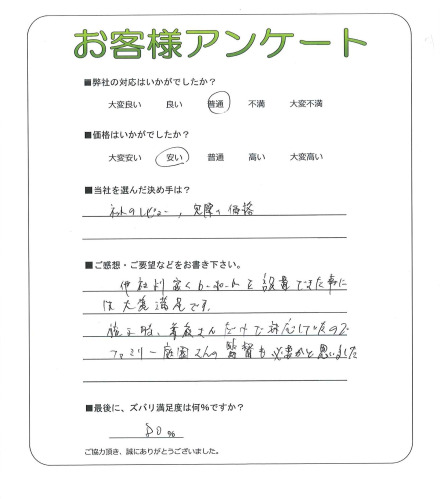 お客様アンケート
■弊社の対応はいかがでしたか？
大変良い 良い 普通 不満 大変不満
■価格はいかがでしたか？
大変安い 安い 普通 高い 大変高い
■当社を選んだ決め手は？
ネットのレビュー，実際の価格
■ご感想・ご要望などをお書き下さい。
他社より安くカーポートを設置できた事に
は大変満足です。
施工時、業者さんだけで対応していたので
ファミリー庭園さんの監督も必要かと思いました
■最後に、ズバリ満足度は何%ですか？
80%
ご協力頂き、誠にありがとうございました。